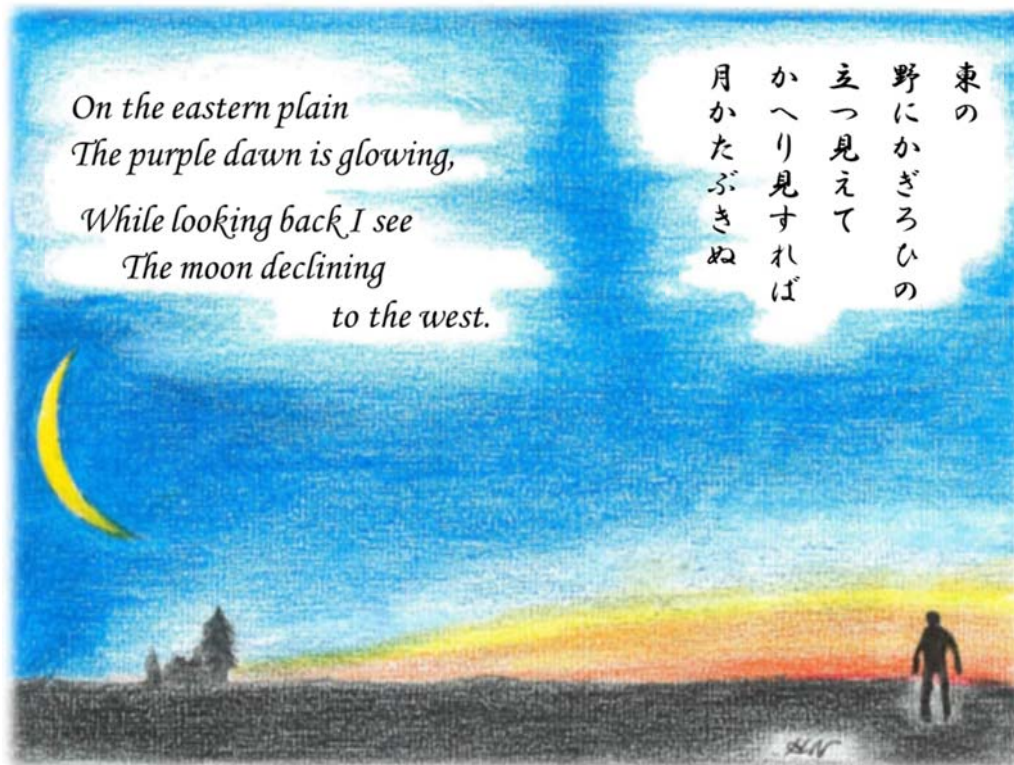 On the eastern plain
The purple dawn is glowing,
While looking back I see
The moon declining
to the west.
東の
野にかぎろひの
立つ見えて
かへり見すれば
月かたぶきぬ
HN